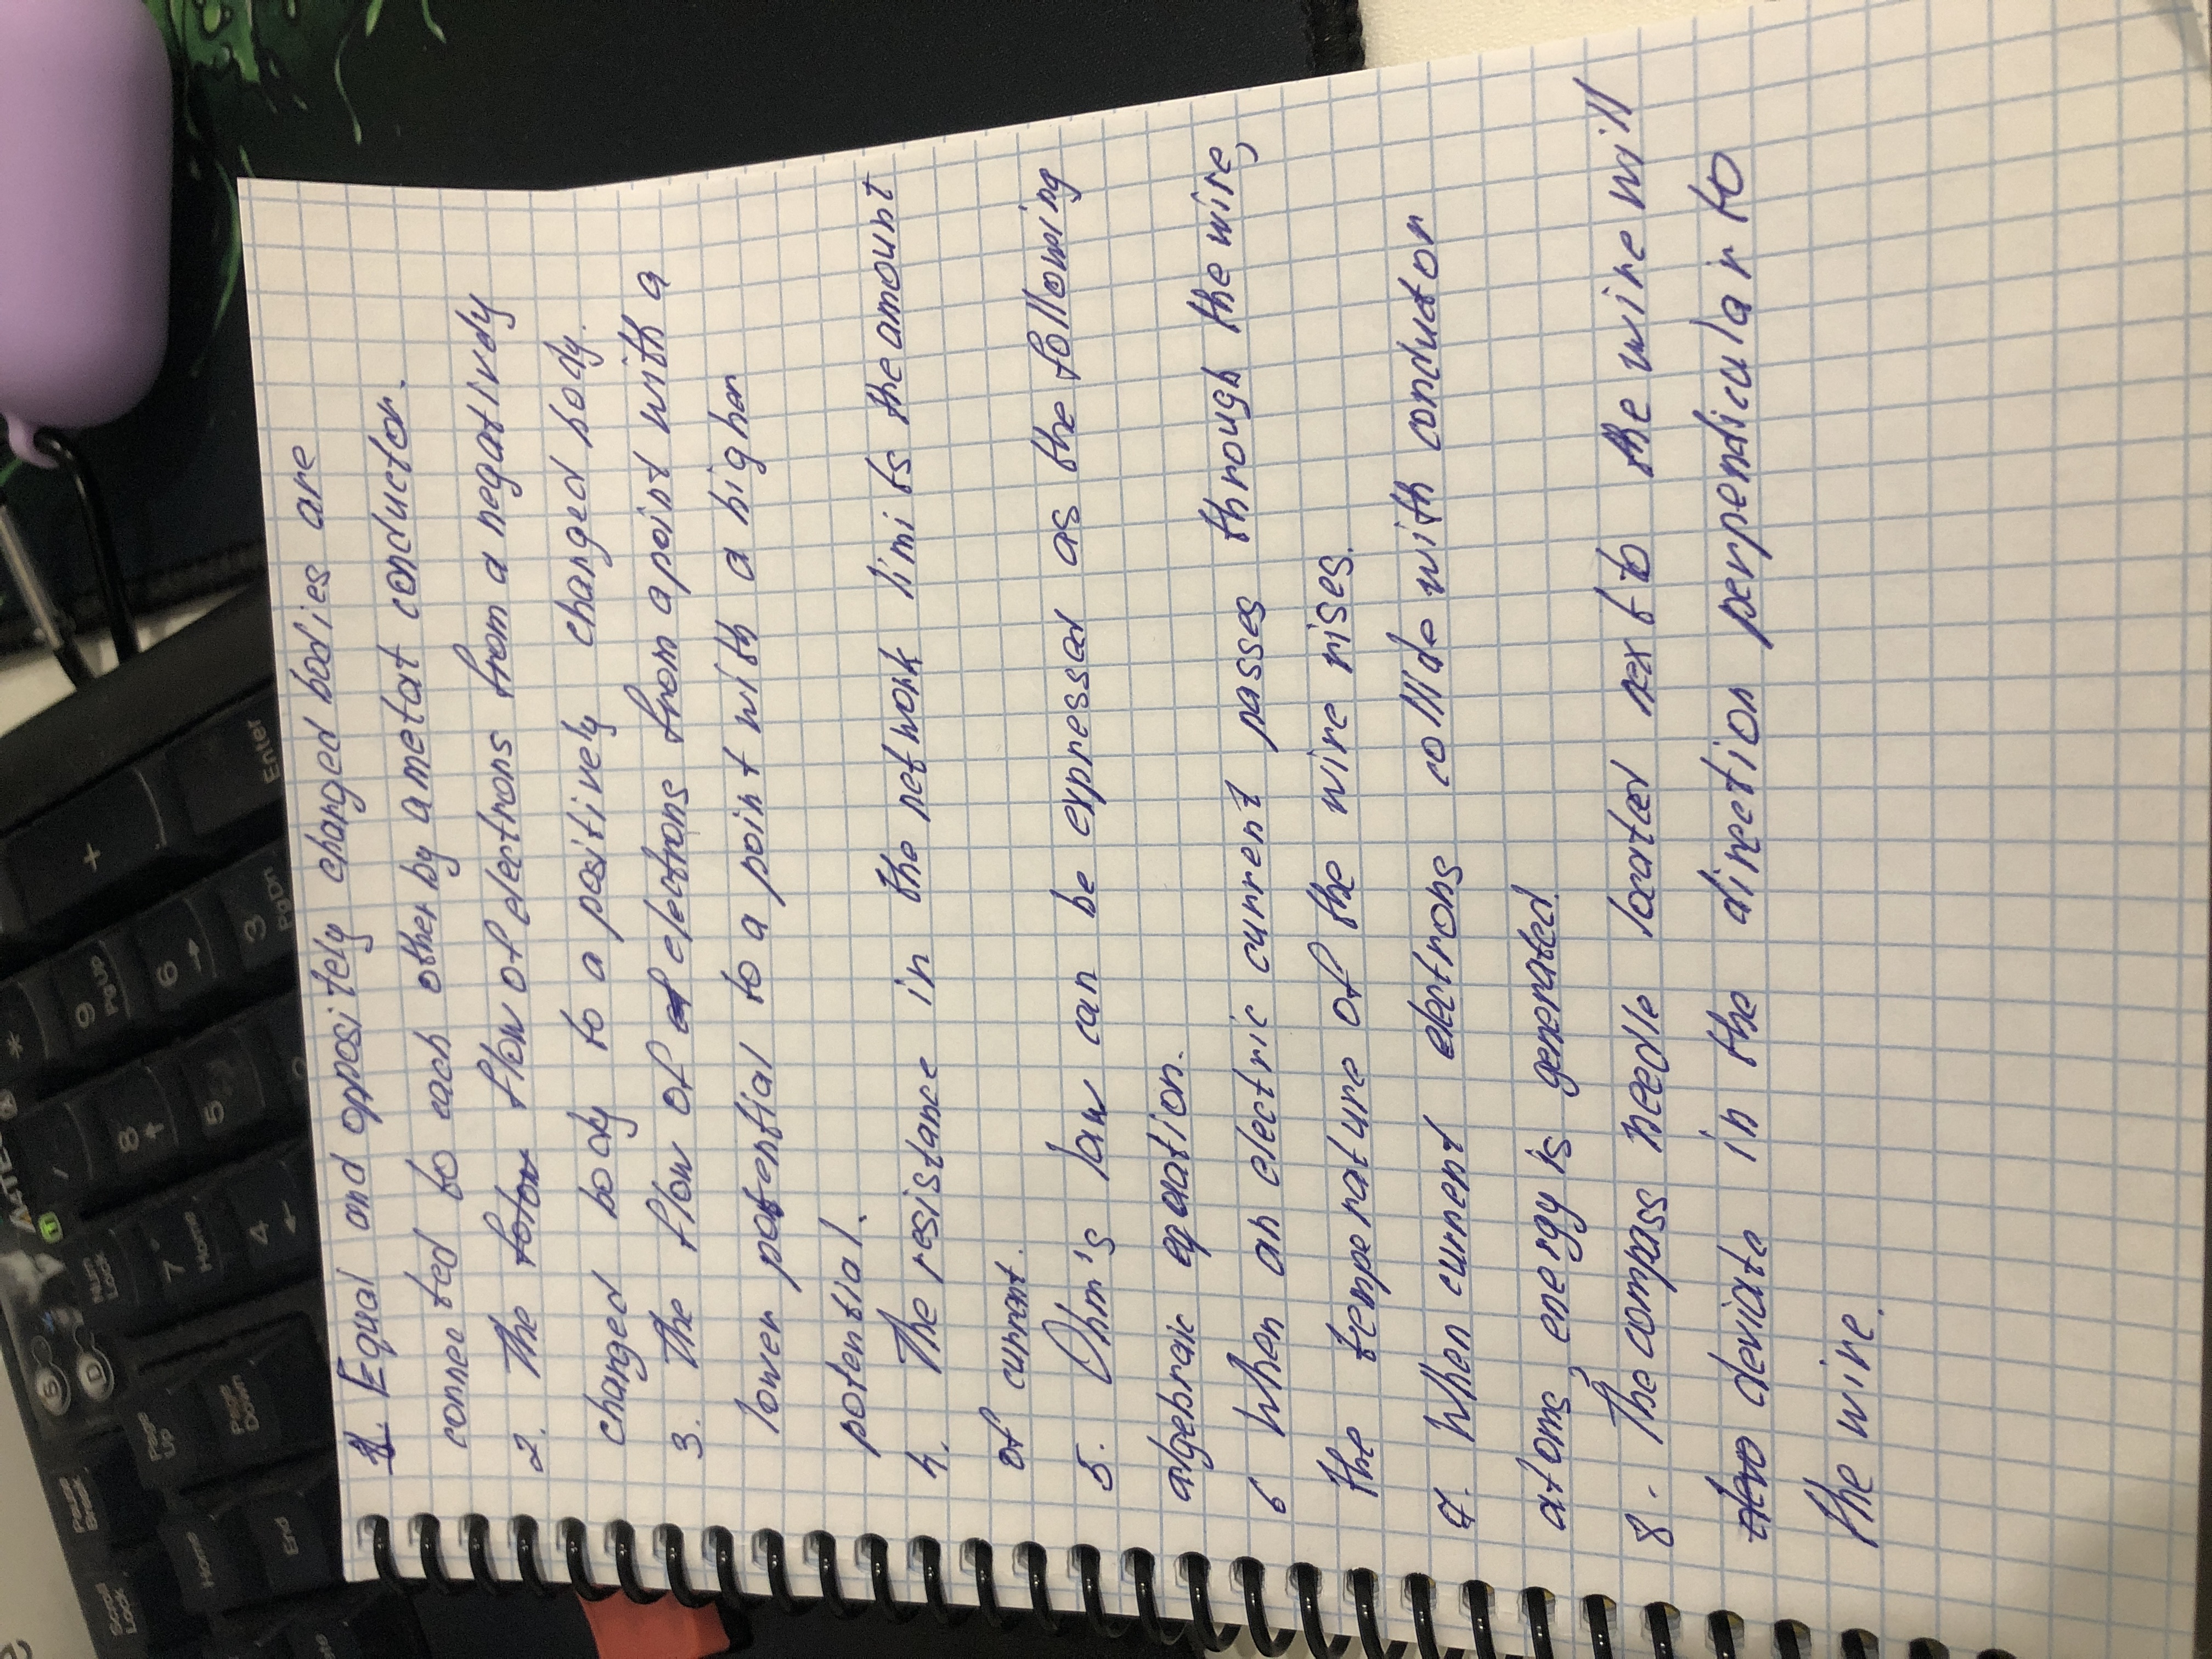 1. Equal and oppositely charged bodies are
connected to each other by a metat conductor.
2. The flow of electrons from a negatively
charged body to a positively charged body.
3. The flow of electrons from a point with a
lower potential to a point with a higher
potential.
4. The resistance in the network limits the amount
of current.
5. Ohm's law can be expressed as the following
algebraic equation.
6 When an electric current passes through the wire,
the temperature of the wire rises.
7. When current electrons collide with conductor
atoms, energy is generated.
8. The compass needle located next to the wire will
deviate in the direction perpendicular to
the wire.
+
Enter
*
9
PgUp
6
→
3
PgDn
8
↑
5
2
Num
Lock
7
Home
4
←
Page
Up
Page
Down
Pause
Break
Home
End
Scroll
Lock